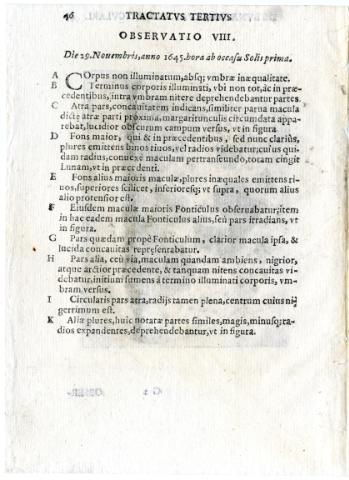 46 TRACTATVS TERTIVS
OBSERVATIO VIII.
Die 29. Nouembris, anno 1645. hora ab occasu Solis prima.
A COrpus non illuminatum, absq; vmbræ inæqualitate.
B Terminus corporis illuminati, vbi non tot, ac in præ-
cedentibus, intra vmbram nitere deprehendebantur partes.
C Atra pars, concauitatem indicans, similiter parua macula
dictæ atræ parti proxima, margaritunculis circumdata appa-
rebat, lucidior obscurum campum versus, vt in figura.
D Fons maior, qui & in præcedentibus, sed nunc clariùs,
plures emittens binos riuos, vel radios videbatur, cuius qui-
dam radius, conuexè maculam pertranseundo, totam cingit
Lunam, vt in præcedenti.
E Fons alius maioris maculæ, plures inæquales emittens ri-
uos, superiores scilicet, inferioresq; vt supra, quorum alius
alio protensior est.
F Eiusdem maculæ maioris Fonticulus obseruabatur; item
in hac eadem macula Fonticulus alius, seù pars irradians, vt
in figura.
G Pars quædam propè Fonticulum, clarior macula ipsa, &
lucida concauitas repręsentabatur.
H Pars alia, ceù via, maculam quandam ambiens, nigrior,
atque arctior præcedente, & tanquam nitens concauitas vi-
debatur, initium sumens à termino illuminati corporis, vm-
bram versus.
I Circularis pars atra, radijs tamen plena, centrum cuius ni-
gerrimum est.
K Aliæ plures, huic notaræ partes similes, magis, minusq; ra-
dios expandentes, deprehendebantur, vt in figura.